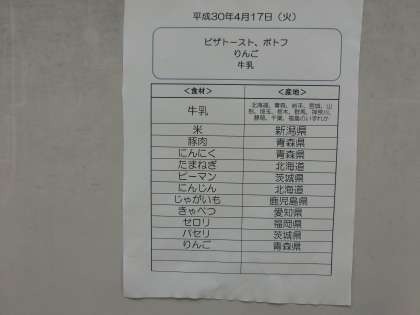 平成30年4月17日（火）
ピザトースト、ポトフ
りんご
牛乳
＜食材＞ ＜産地＞
牛乳 北海道、青森、岩手、宮城、山
形、埼玉、栃木、群馬、神奈川、
静岡、千葉、福島のいずれか
米 新潟県
豚肉 青森県
にんにく 青森県
たまねぎ 北海道
ピーマン 茨城県
にんじん 北海道
じゃがいも 鹿児島県
きゃべつ 愛知県
セロリ 福岡県
パセリ 茨城県
りんご 青森県